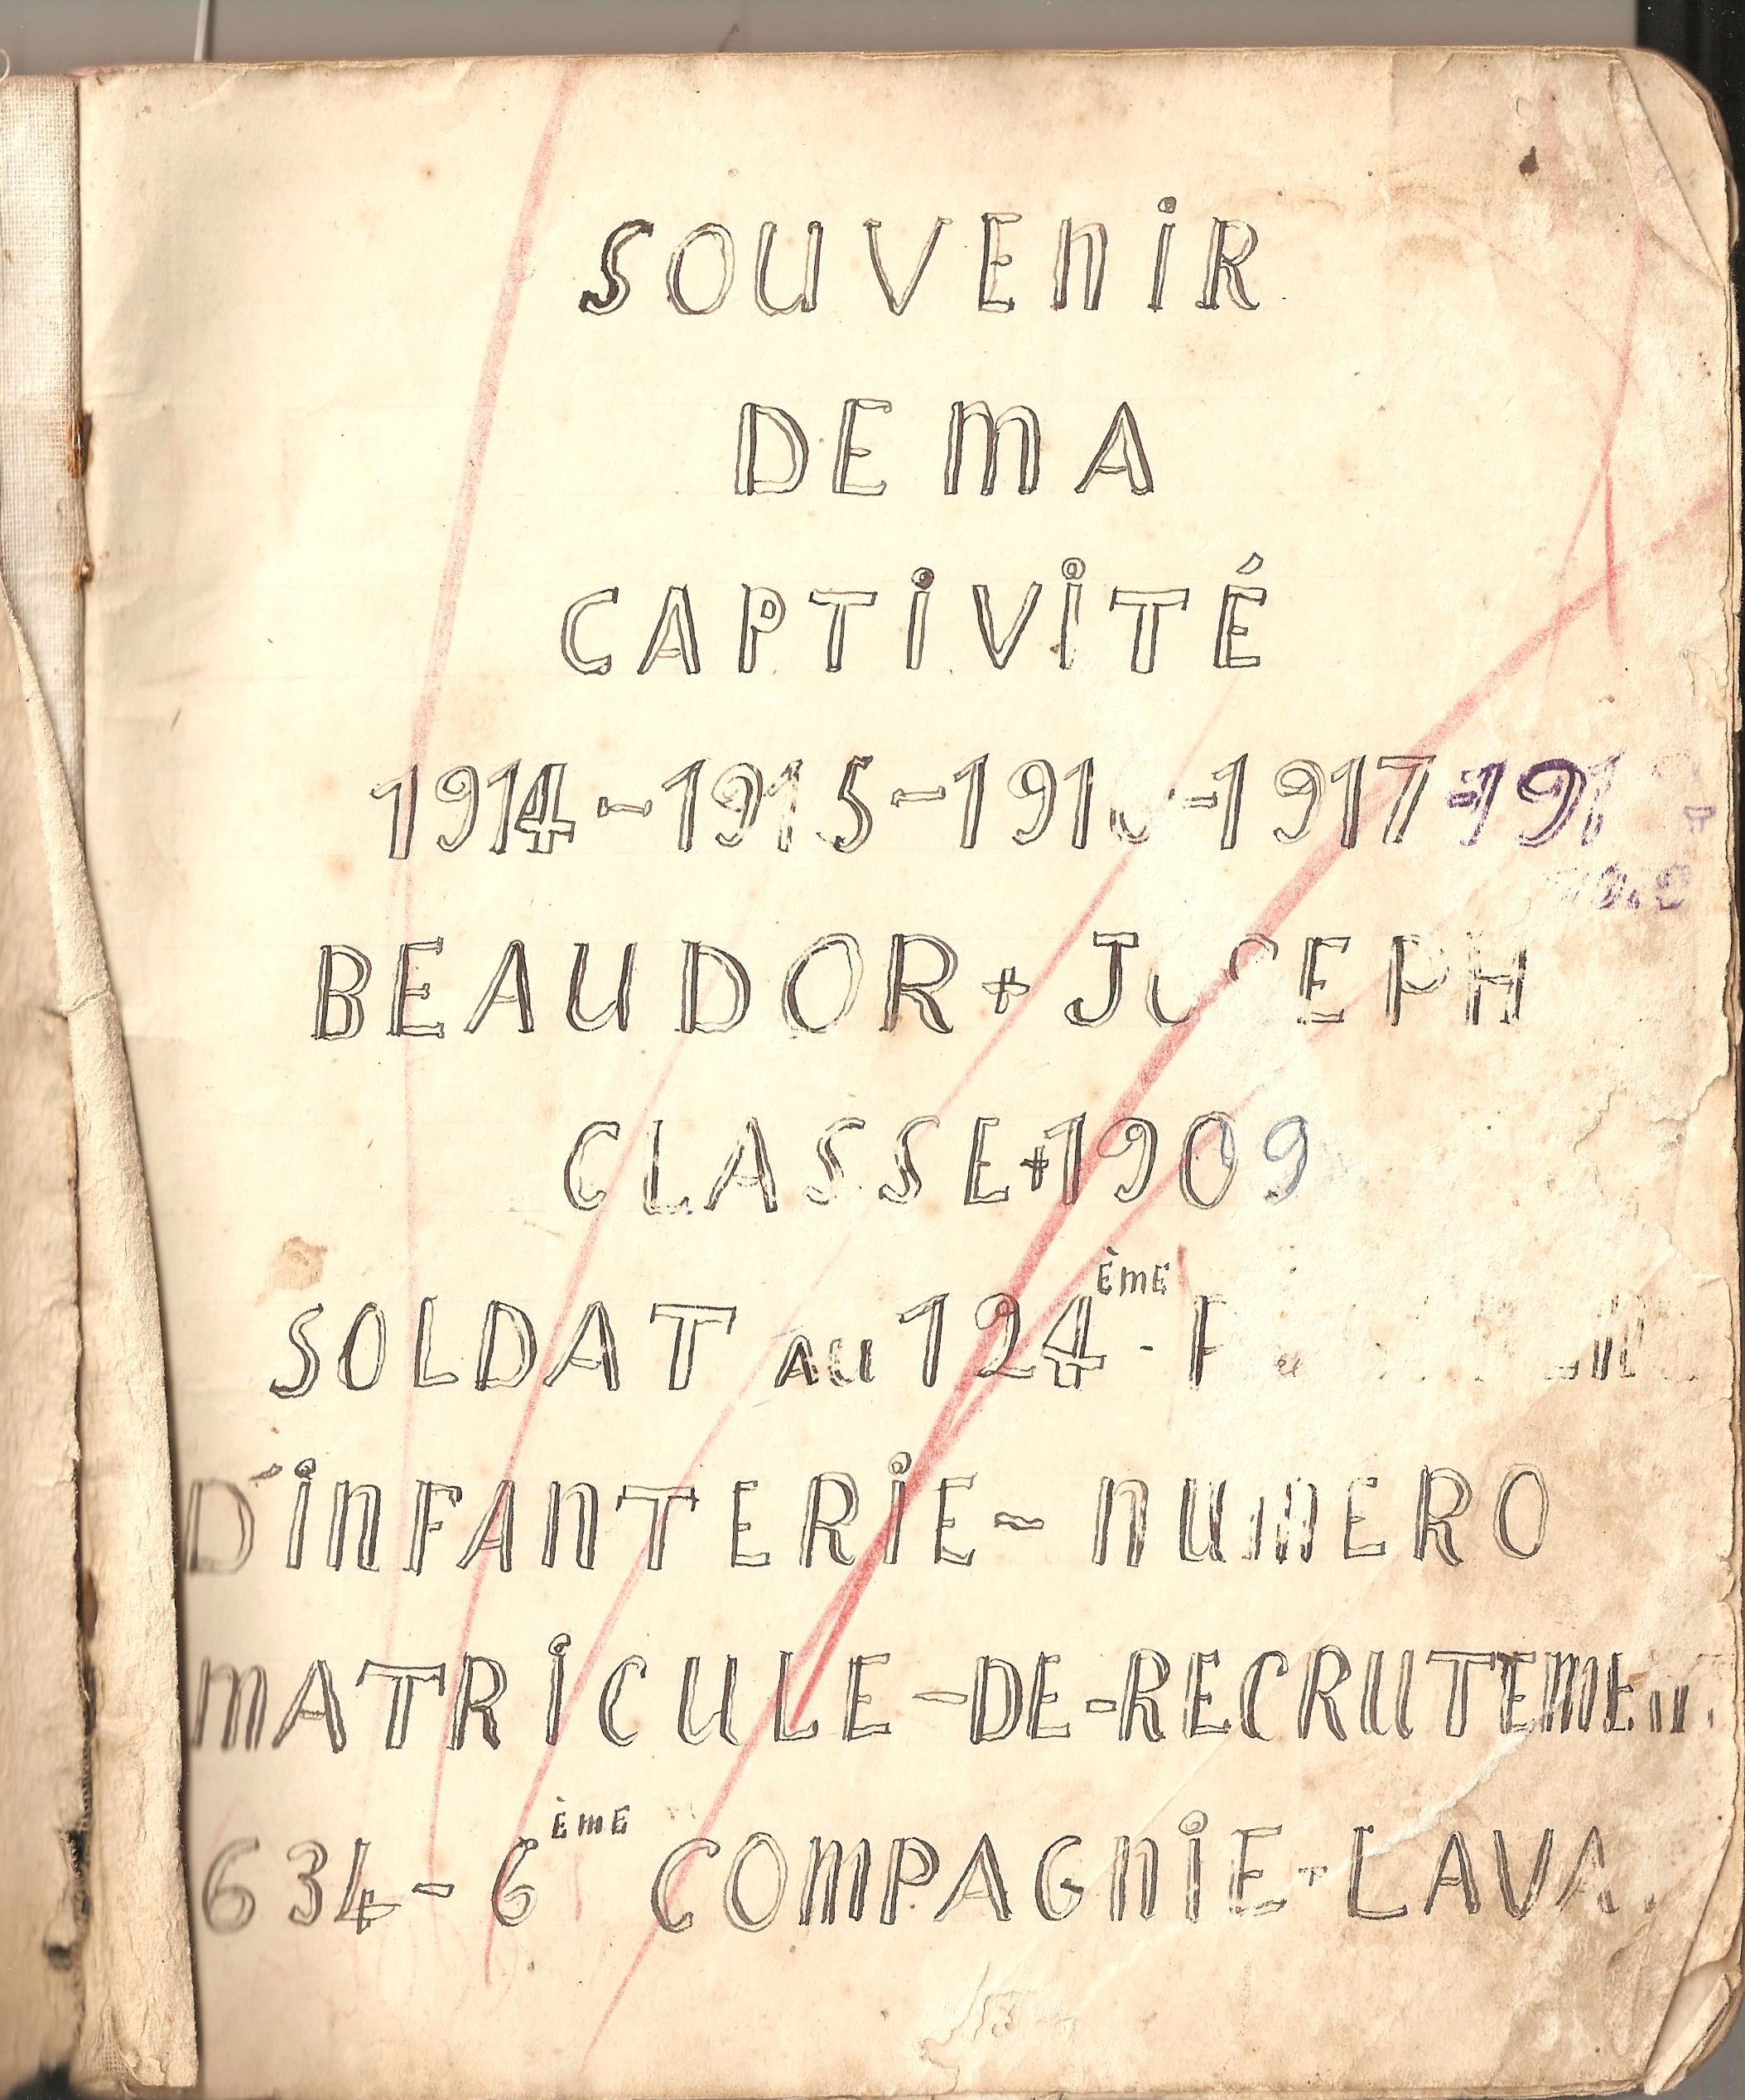 SOUVENIR
DE MA
CAPTIVITÉ
1914-1915-1916-1917-191
BEAUDOR + JOSEPH
CLASSE + 1909
SOLDAT AU 124ÈME
D'INFANTERIE - NUMERO
MATRICULE - DE - RECRUTEMENT
634 - 6ÈME COMPAGNIE - LAVA